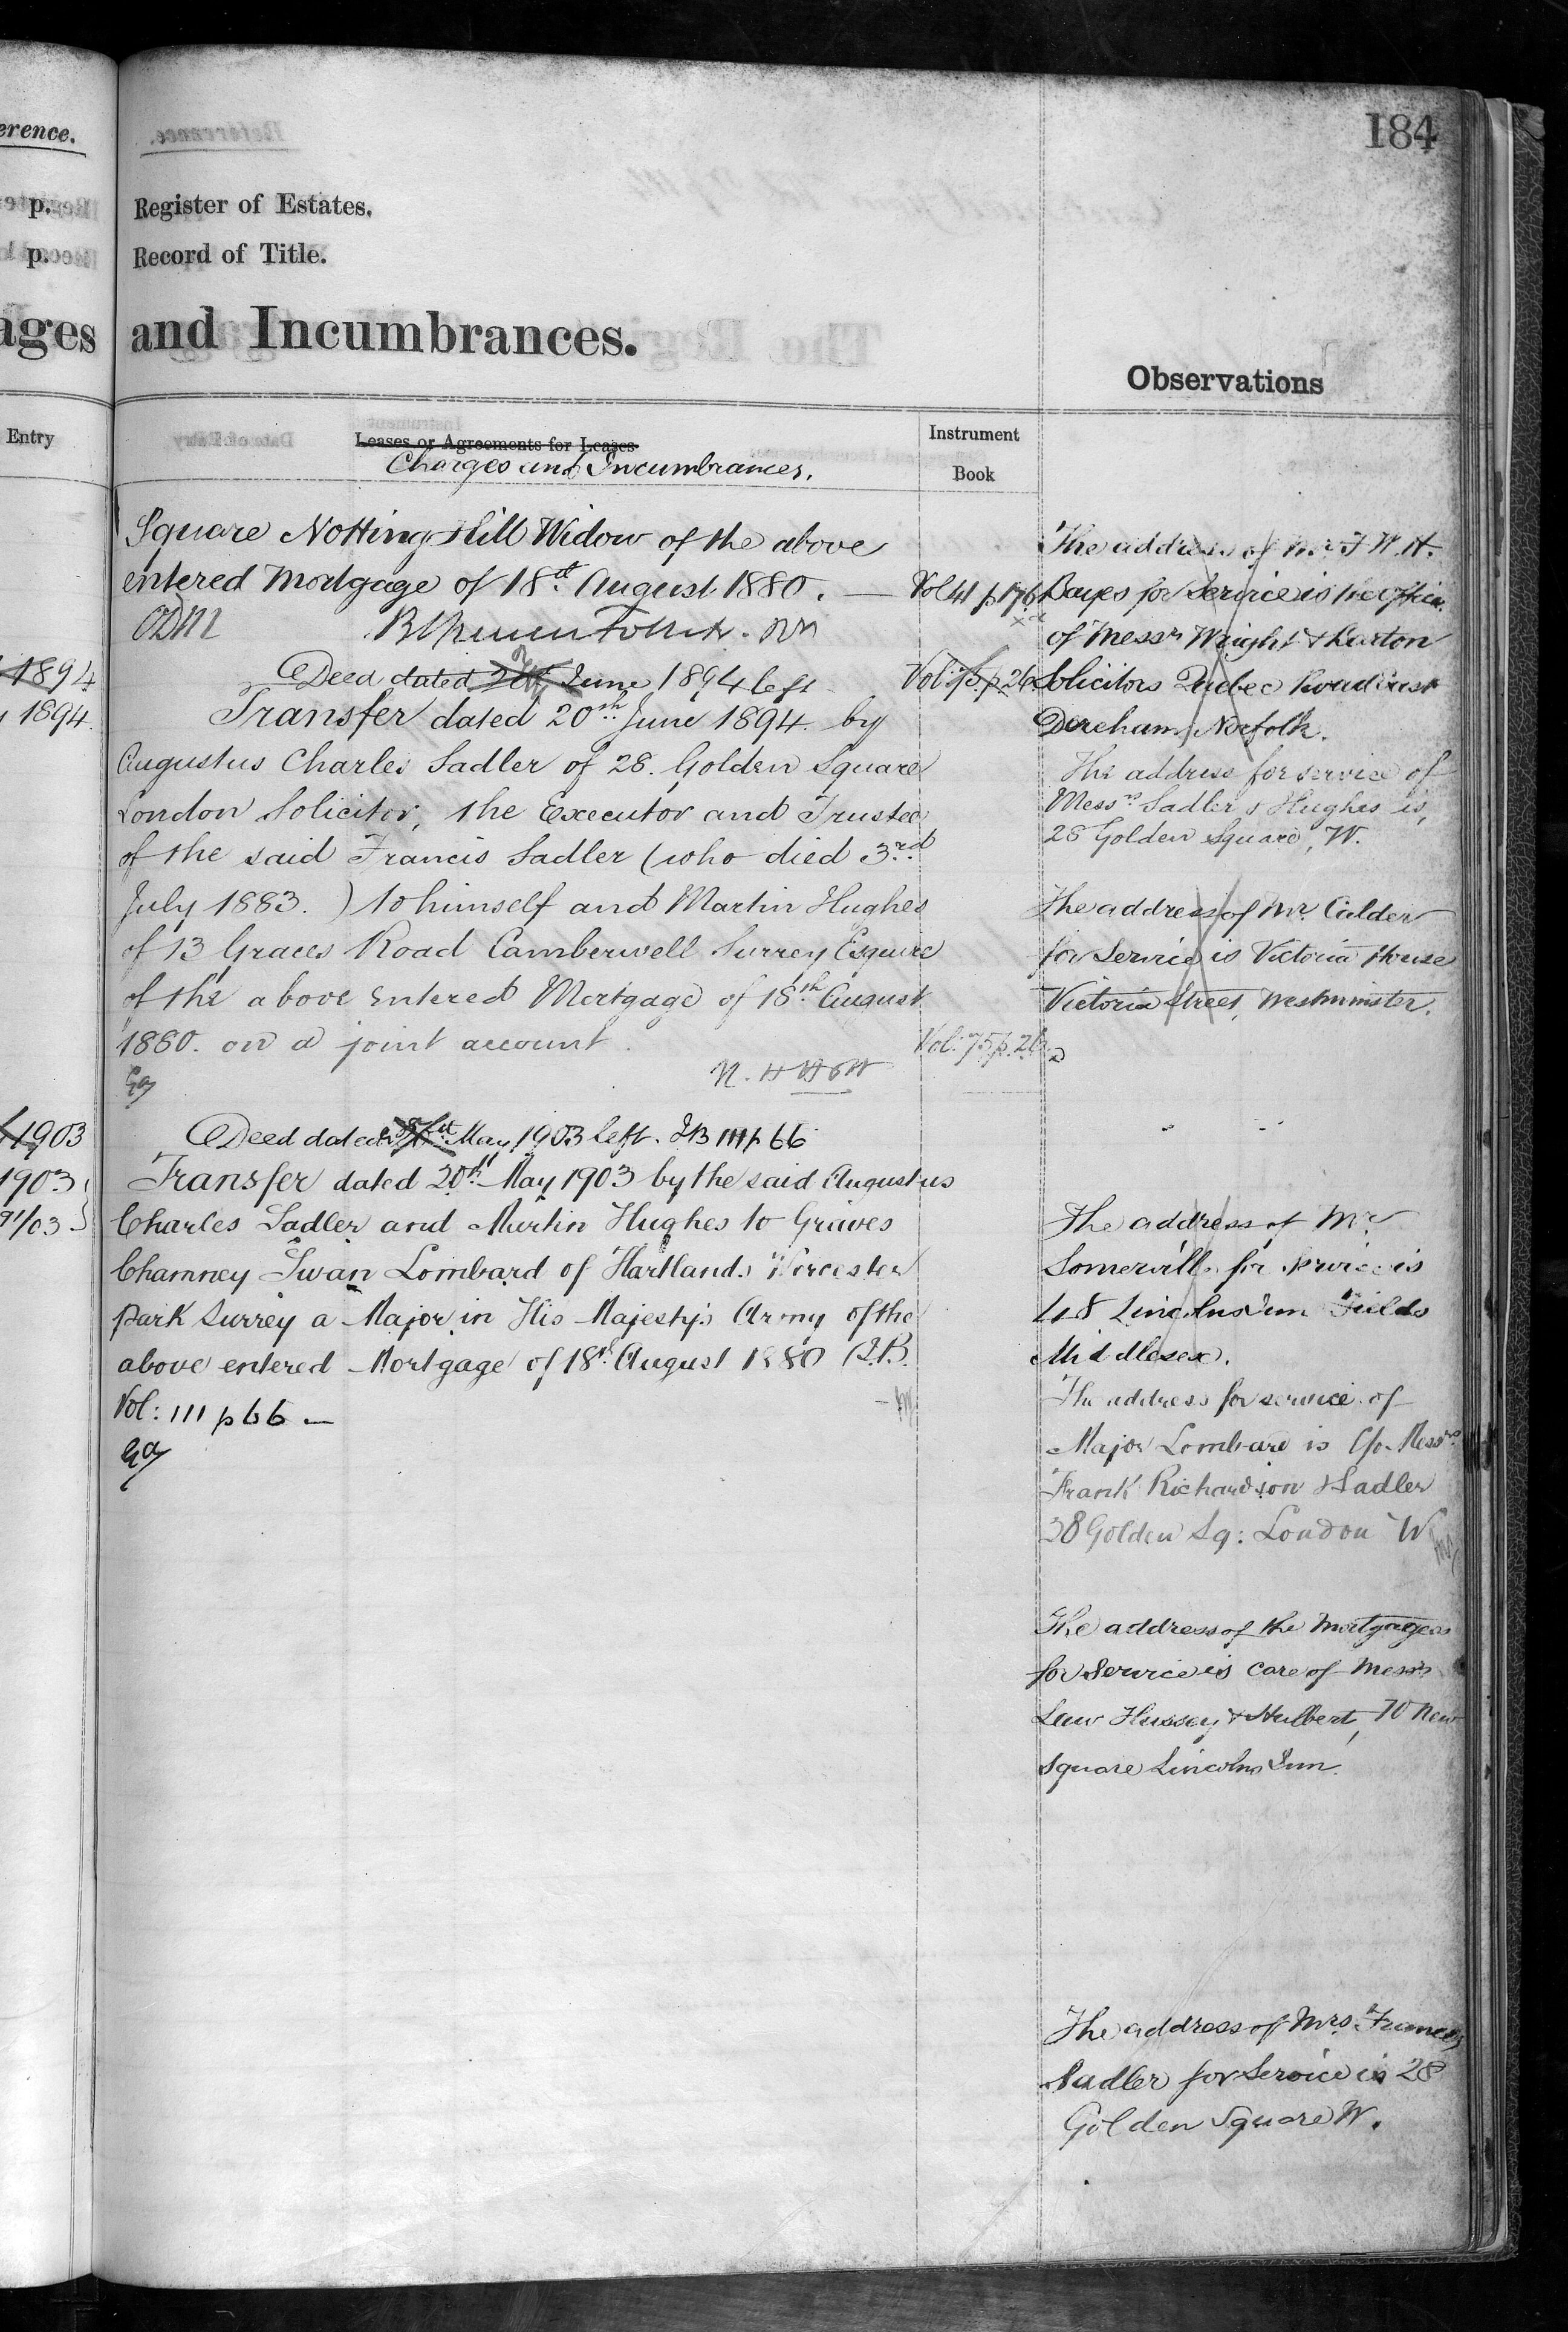 184
erence.
p.
p.
ages
Entry
1894
1894
1903
1903
Register of Estates.
Record of Title.
and Incumbrances.
Observations
Leases or Agreements for Leases
Charges and Incumbrances.
Instrument
Book
Square Notting Hill Widow of the above
entered Mortgage of 18th August 1880. — Vol 41 p 176
Deed dated June 1894 left Vol: 75 p. 26
Transfer dated 20th June 1894 by
Augustus Charles Sadler of 28. Golden Square
London Solicitor, the Executor and Trustee
of the said Francis Sadler (who died 3rd
July 1883.) to himself and Martin Hughes
of 13 Graces Road Camberwell Surrey Esquire
of the above entered Mortgage of 18th August
1880. on a joint account. Vol: 75 p. 26
Deed dated May 1903 left. IB 111 p 66
Transfer dated 20th May 1903 by the said Augustus
Charles Sadler and Martin Hughes to Graves
Chamney Swan Lombard of Hartlands Worcester
Park Surrey a Major in His Majesty's Army of the
above entered Mortgage of 18th August 1880 (I.B.
Vol: 111 p 66 —
The address of Mr F. W. H.
for Service is the office
of Messrs Wright &
Solicitors Quebec Road East
Dereham, Norfolk.
The address for service of
Messrs Sadler & Hughes is,
28 Golden Square, W.
The address of Mr. Calder
for Service is Victoria House
Victoria Street, Westminster.
The address of Mr
Somerville for Service is
48 Lincolns Inn Fields
Middlesex.
The address for service of
Major Lombard is C/o Messrs
Frank Richardson & Sadler
38 Golden Sq: London W
The address of the Mortgagees
for Service is care of Messrs
Law Hussey & Hulbert, 10 New
Square Lincolns Inn.
The address of Mrs. Frances
Sadler for Service is 28
Golden Square W.